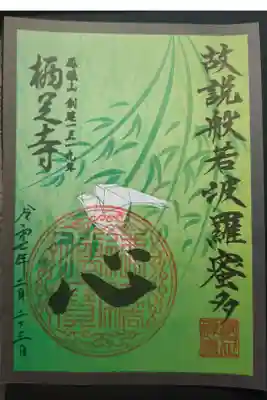 故説般若波羅蜜多
心
鳳儀山 創建一三一九年
栖足寺
令和七年二月二十三日